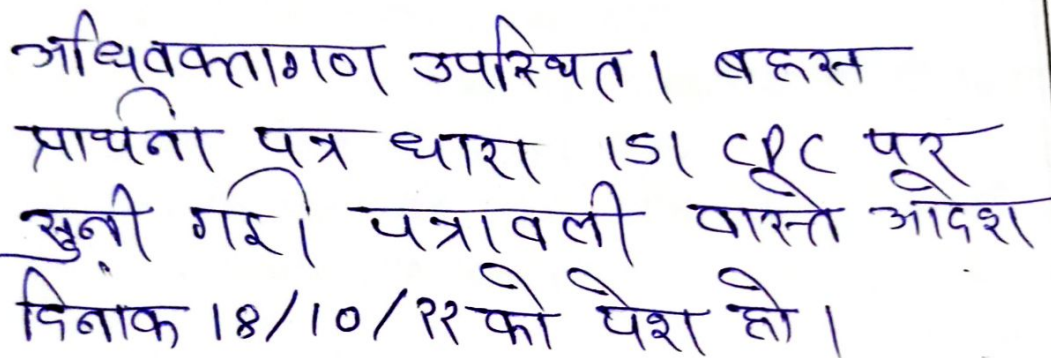 अधिवक्तागण उपस्थित। बहस
प्रार्थना पत्र धारा 151 CPC पर
सुनी गई। पत्रावली वास्ते आदेश
दिनांक 18/10/22 को पेश हो।